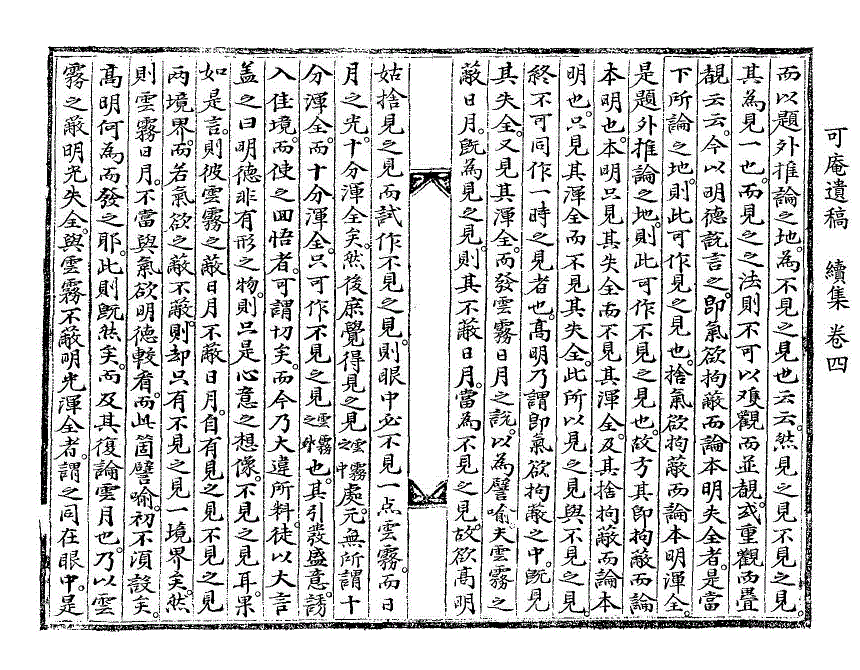 可庵遺稿 續集 卷四
而以題外推論之地。爲不見之見也云云。然見之見不見之見。
其爲見一也。而見之之法則不可以雙觀而並覩。或重觀而疊
覩云云。今以明德說言之。卽氣欲拘蔽而論本明失全者。是當
下所論之地。則此可作見之見也。捨氣欲拘蔽而論本明渾全。
是題外推論之地。則此可作不見之見也。故方其卽拘蔽而論
本明也。本明只見其失全而不見其渾全。及其捨拘蔽而論本
明也。只見其渾全而不見其失全。此所以見之見與不見之見。
終不可同作一時之見者也。高明乃謂卽氣欲拘蔽之中。旣見
其失全。又見其渾全。而發雲霧日月之說。以爲譬喩。夫雲霧之
蔽日月。旣爲見之見。則其不蔽日月。當爲不見之見。故欲高明
姑捨見之見而試作不見之見。則眼中必不見一点雲霧。而日
月之光。十分渾全矣。然後庶覺得見之見雲霧之中處。元無所謂十
分渾全。而十分渾全。只可作不見之見雲霧之外也。其引發盛意。誘
入佳境。而使之回悟者。可謂切矣。而今乃大違所料。徒以大言
盖之曰明德非有形之物。則只是心意之想像。不見之見耳。果
如是言。則彼雲霧之蔽日月不蔽日月。自有見之見不見之見
兩境界。而若氣欲之蔽不蔽。則却只有不見之見一境界矣。然
則雲霧日月。不當與氣欲明德較看。而此箇譬喩。初不須說矣。
高明何爲而發之耶。此則旣然矣。而及其復論雲月也。乃以雲
霧之蔽明光失全。與雲霧不蔽明光渾全者。謂之同在眼中。是